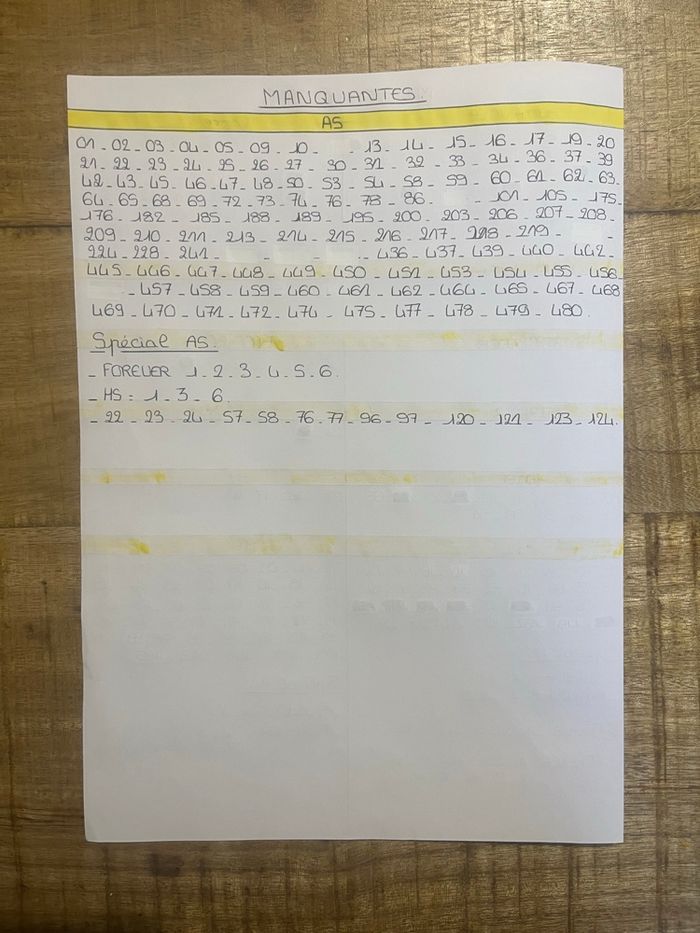 MANQUANTES.
AS
01 - 02 - 03 - 04 - 05 - 09 - 10 - - 13 - 14 - 15 - 16 - 17 - 19 - 20
21 - 22 - 23 - 24 - 25 - 26 - 27 - 30 - 31 - 32 - 33 - 34 - 36 - 37 - 39
42 - 43 - 45 - 46 - 47 - 48 - 50 - 53 - 54 - 58 - 59 - 60 - 61 - 62 - 63.
64 - 65 - 68 - 69 - 72 - 73 - 74 - 76 - 78 - 86. - 101 - 105 - 175 -
176 - 182 - 185 - 188 - 189 - 195 - 200 - 203 - 206 - 207 - 208 -
209 - 210 - 211 - 213 - 214 - 215 - 216 - 217 - 218 - 219 -
224 - 228 - 241 - - 436 - 437 - 439 - 440 - 442 -
445 - 446 - 447 - 448 - 449 - 450 - 451 - 453 - 454 - 455 - 456
- 457 - 458 - 459 - 460 - 461 - 462 - 464 - 465 - 467 - 468
469 - 470 - 471 - 472 - 474 - 475 - 477 - 478 - 479 - 480.
Spécial AS.
- FOREVER 1 - 2 - 3 - 4 - 5 - 6.
- HS : 1 - 3 - 6.
- 22 - 23 - 24 - 57 - 58 - 76 - 77 - 96 - 97 - 120 - 121 - 123 - 124.